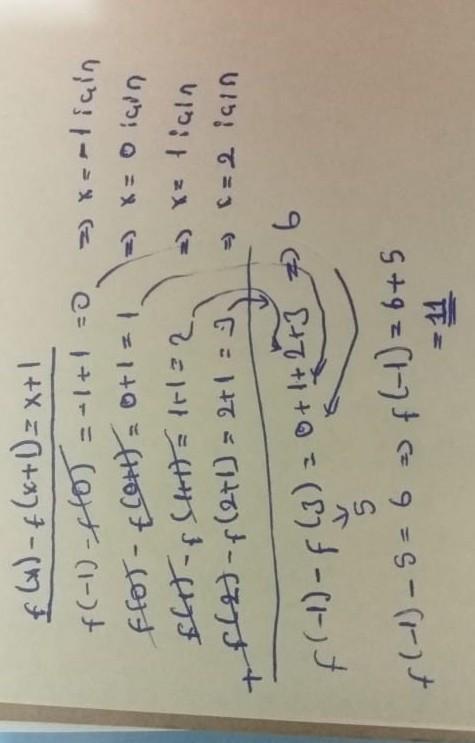 f(x) - f(x+1) = x+1
f(-1) - f(0) = -1+1 = 0 => x = -1 için
f(0) - f(0+1) = 0+1 = 1 => x = 0 için
f(1) - f(1+1) = 1+1 = 2 => x = 1 için
+ f(2) - f(2+1) = 2+1 = 3 => x = 2 için
f(-1) - f(3) = 0+1+2+3 => 6
5
f(-1) - 5 = 6 => f(-1) = 6+5
= 11